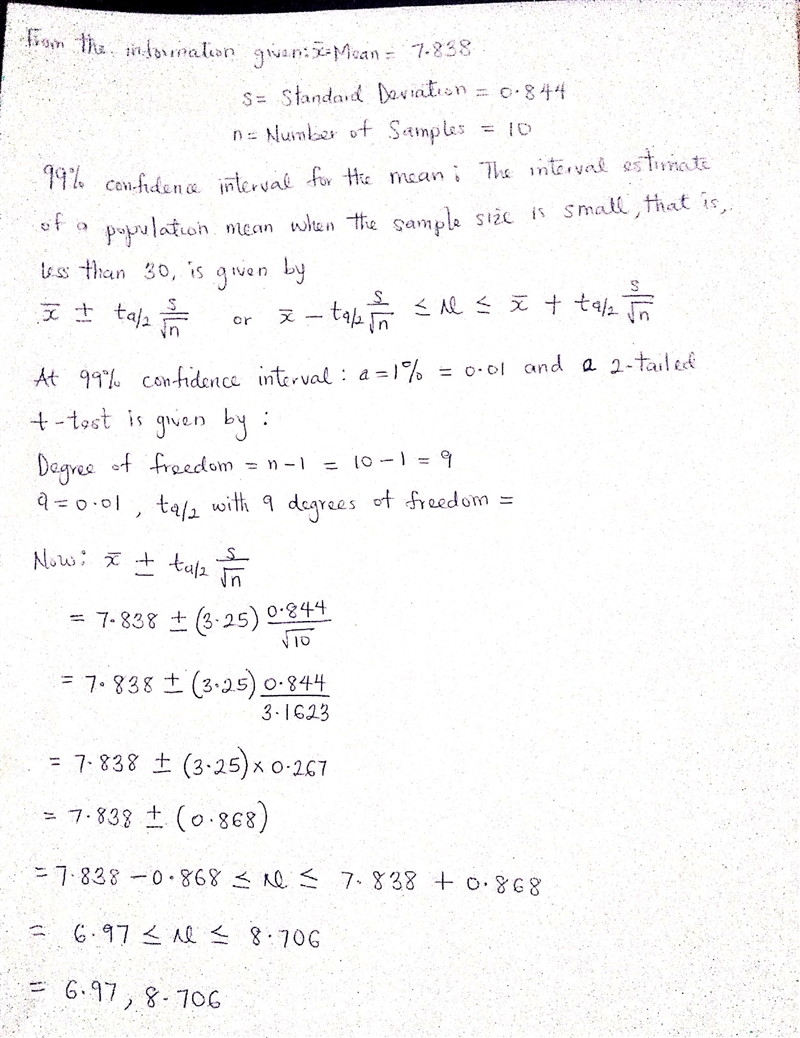 From the information given: x̄=Mean = 7.838
s= Standard Deviation = 0.844
n= Number of Samples = 10
99% confidence interval for the mean; The interval estimate
of a population mean when the sample size is small, that is,
less than 30, is given by
x̄ ± ta/2 s/√n or x̄ - ta/2 s/√n ≤ M ≤ x̄ + ta/2 s/√n
At 99% confidence interval: a=1% = 0.01 and a 2-tailed
t-test is given by:
Degree of freedom = n-1 = 10-1 = 9
a=0.01, ta/2 with 9 degrees of freedom =
Now: x̄ ± ta/2 s/√n
= 7.838 ± (3.25) 0.844/√10
= 7.838 ± (3.25) 0.844/3.1623
= 7.838 ± (3.25) x 0.267
= 7.838 ± (0.868)
= 7.838 - 0.868 ≤ M ≤ 7.838 + 0.868
= 6.97 ≤ M ≤ 8.706
= 6.97, 8.706